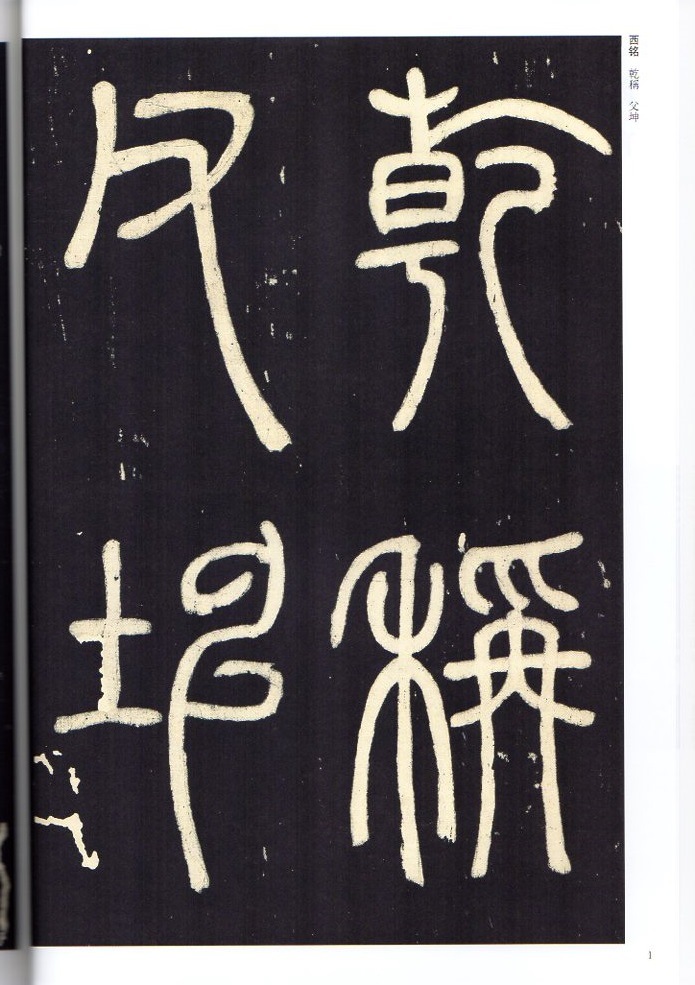 西铭 乾稱 父坤
乾稱
父坤
1